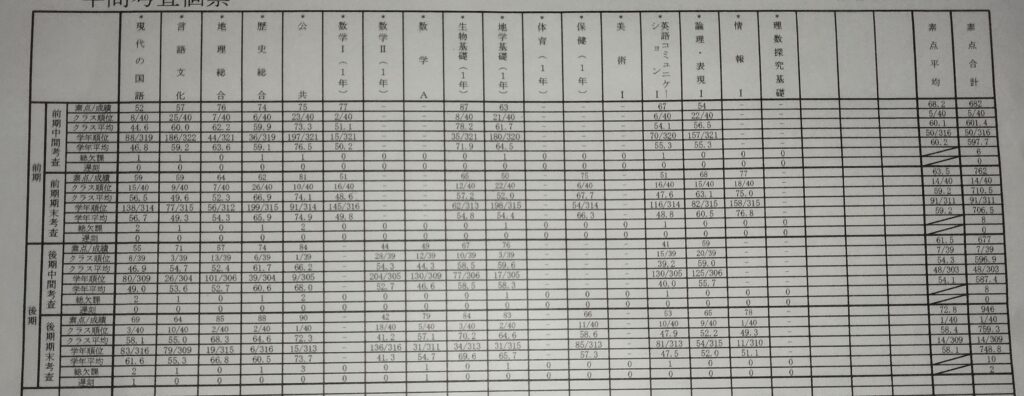 年間考査個票
現代の国語 言語文化 地理総合 歴史総合 公共 数学Ⅰ（1年） 数学Ⅱ（1年） 数学A 生物基礎（1年） 地学基礎（1年） 体育（1年） 保健（1年） 美術Ⅰ 英語コミュニケーションⅠ 論理・表現Ⅰ 情報Ⅰ 理数探究基礎 素点平均 素点合計
前期
前期中間考査
素点/成績 52 57 76 74 75 77 - - 87 63 - - - 67 54 - - 68.2 682
クラス順位 8/40 25/40 7/40 6/40 23/40 2/40 - - 8/40 21/40 - - - 6/40 22/40 - - 5/40 5/40
クラス平均 44.6 60.0 62.2 59.9 73.3 51.1 - - 78.2 61.7 - - - 54.1 56.5 - - 60.1 601.4
学年順位 88/319 186/322 44/321 36/319 197/321 15/321 - - 35/321 180/320 - - - 70/320 157/321 - - 50/316 50/316
学年平均 46.8 59.2 63.6 59.1 76.5 50.2 - - 71.9 64.5 - - - 55.3 55.3 - - 60.2 597.7
総欠課 1 1 0 1 1 0 0 0 0 1 0 0 0 1 0 0 0 6
遅刻 0 0 0 0 0 0 0 0 0 0 0 0 0 0 0 0 0 0
前期期末考査
素点/成績 59 59 64 62 81 51 - - 65 50 - 75 - 51 68 77 - 63.5 762
クラス順位 15/40 9/40 7/40 26/40 10/40 16/40 - - 12/40 22/40 - 6/40 - 16/40 15/40 18/40 - 14/40 14/40
クラス平均 56.5 49.6 52.3 66.9 74.1 48.6 - - 57.2 52.0 - 67.7 - 47.6 63.1 75.0 - 59.2 710.5
学年順位 138/314 77/315 56/312 199/315 91/314 145/316 - - 62/313 198/315 - 54/314 - 116/314 82/315 158/315 - 91/311 91/311
学年平均 56.7 49.3 54.3 65.9 74.9 49.8 - - 54.8 54.4 - 66.3 - 48.8 60.5 76.8 - 59.2 706.5
総欠課 2 1 0 1 2 0 0 0 0 1 0 0 0 1 0 0 0 8
遅刻 0 0 0 0 0 0 0 0 0 0 0 0 0 0 0 0 0 0
後期
後期中間考査
素点/成績 55 71 57 74 84 - 44 49 67 76 - - - 41 59 - - 61.5 677
クラス順位 8/39 3/39 13/39 6/39 1/39 - 28/39 12/39 10/39 3/39 - - - 15/39 20/39 - - 7/39 7/39
クラス平均 46.9 54.7 52.4 61.7 66.2 - 54.3 44.3 58.5 59.6 - - - 39.2 59.0 - - 54.3 596.9
学年順位 80/309 26/304 101/306 39/304 9/305 - 204/305 130/309 77/306 17/305 - - - 130/305 125/306 - - 48/303 48/303
学年平均 49.0 53.6 52.7 60.6 68.0 - 52.7 46.6 58.5 58.3 - - - 40.0 55.7 - - 54.1 587.4
総欠課 2 1 0 1 2 0 0 0 0 1 0 0 0 1 0 0 0 8
遅刻 0 0 0 0 0 0 0 0 0 0 0 0 0 0 0 0 0 0
後期期末考査
素点/成績 69 64 85 88 90 - 42 79 84 83 - 66 - 53 65 78 - 72.8 946
クラス順位 3/40 10/40 2/40 2/40 1/40 - 18/40 5/40 3/40 2/40 - 11/40 - 10/40 9/40 1/40 - 1/40 1/40
クラス平均 58.1 55.0 68.3 64.6 72.3 - 41.2 57.1 70.2 64.6 - 58.6 - 47.9 52.2 49.3 - 58.4 759.3
学年順位 83/316 79/309 19/315 6/316 15/313 - 136/316 31/311 34/313 31/315 - 85/313 - 81/313 54/315 11/310 - 14/309 14/309
学年平均 61.6 55.3 66.8 60.5 73.7 - 41.3 54.7 69.6 65.7 - 57.3 - 47.5 52.0 51.1 - 58.1 748.8
総欠課 2 1 0 1 3 0 0 1 0 1 0 0 0 1 0 0 0 10
遅刻 1 0 0 0 0 0 0 1 0 0 0 0 0 0 0 0 0 2